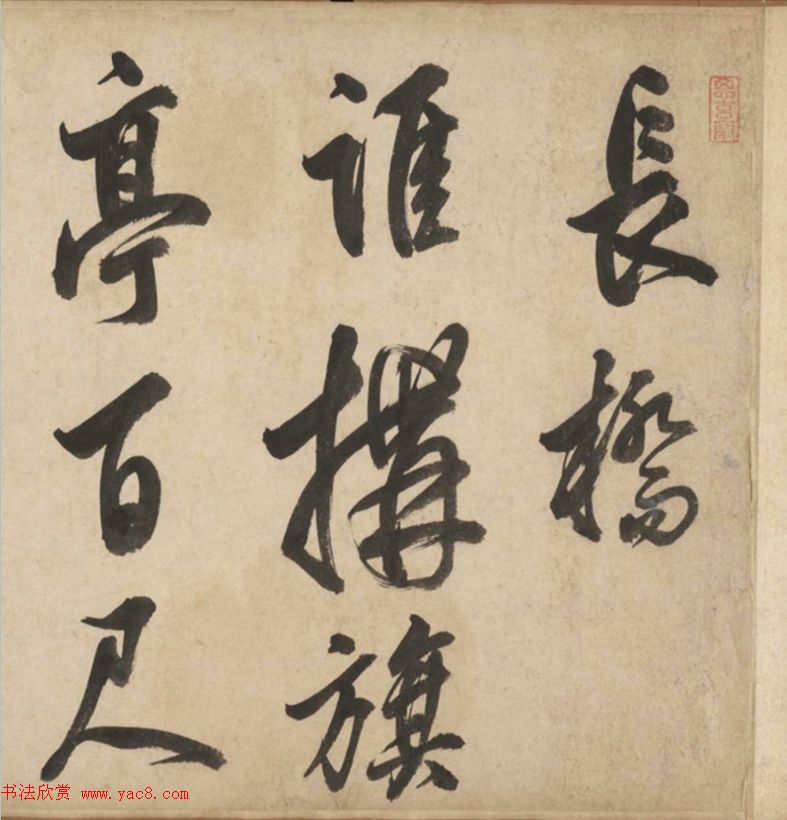 長橋
誰搆旗
亭百尺
书法欣赏 www.yac8.com